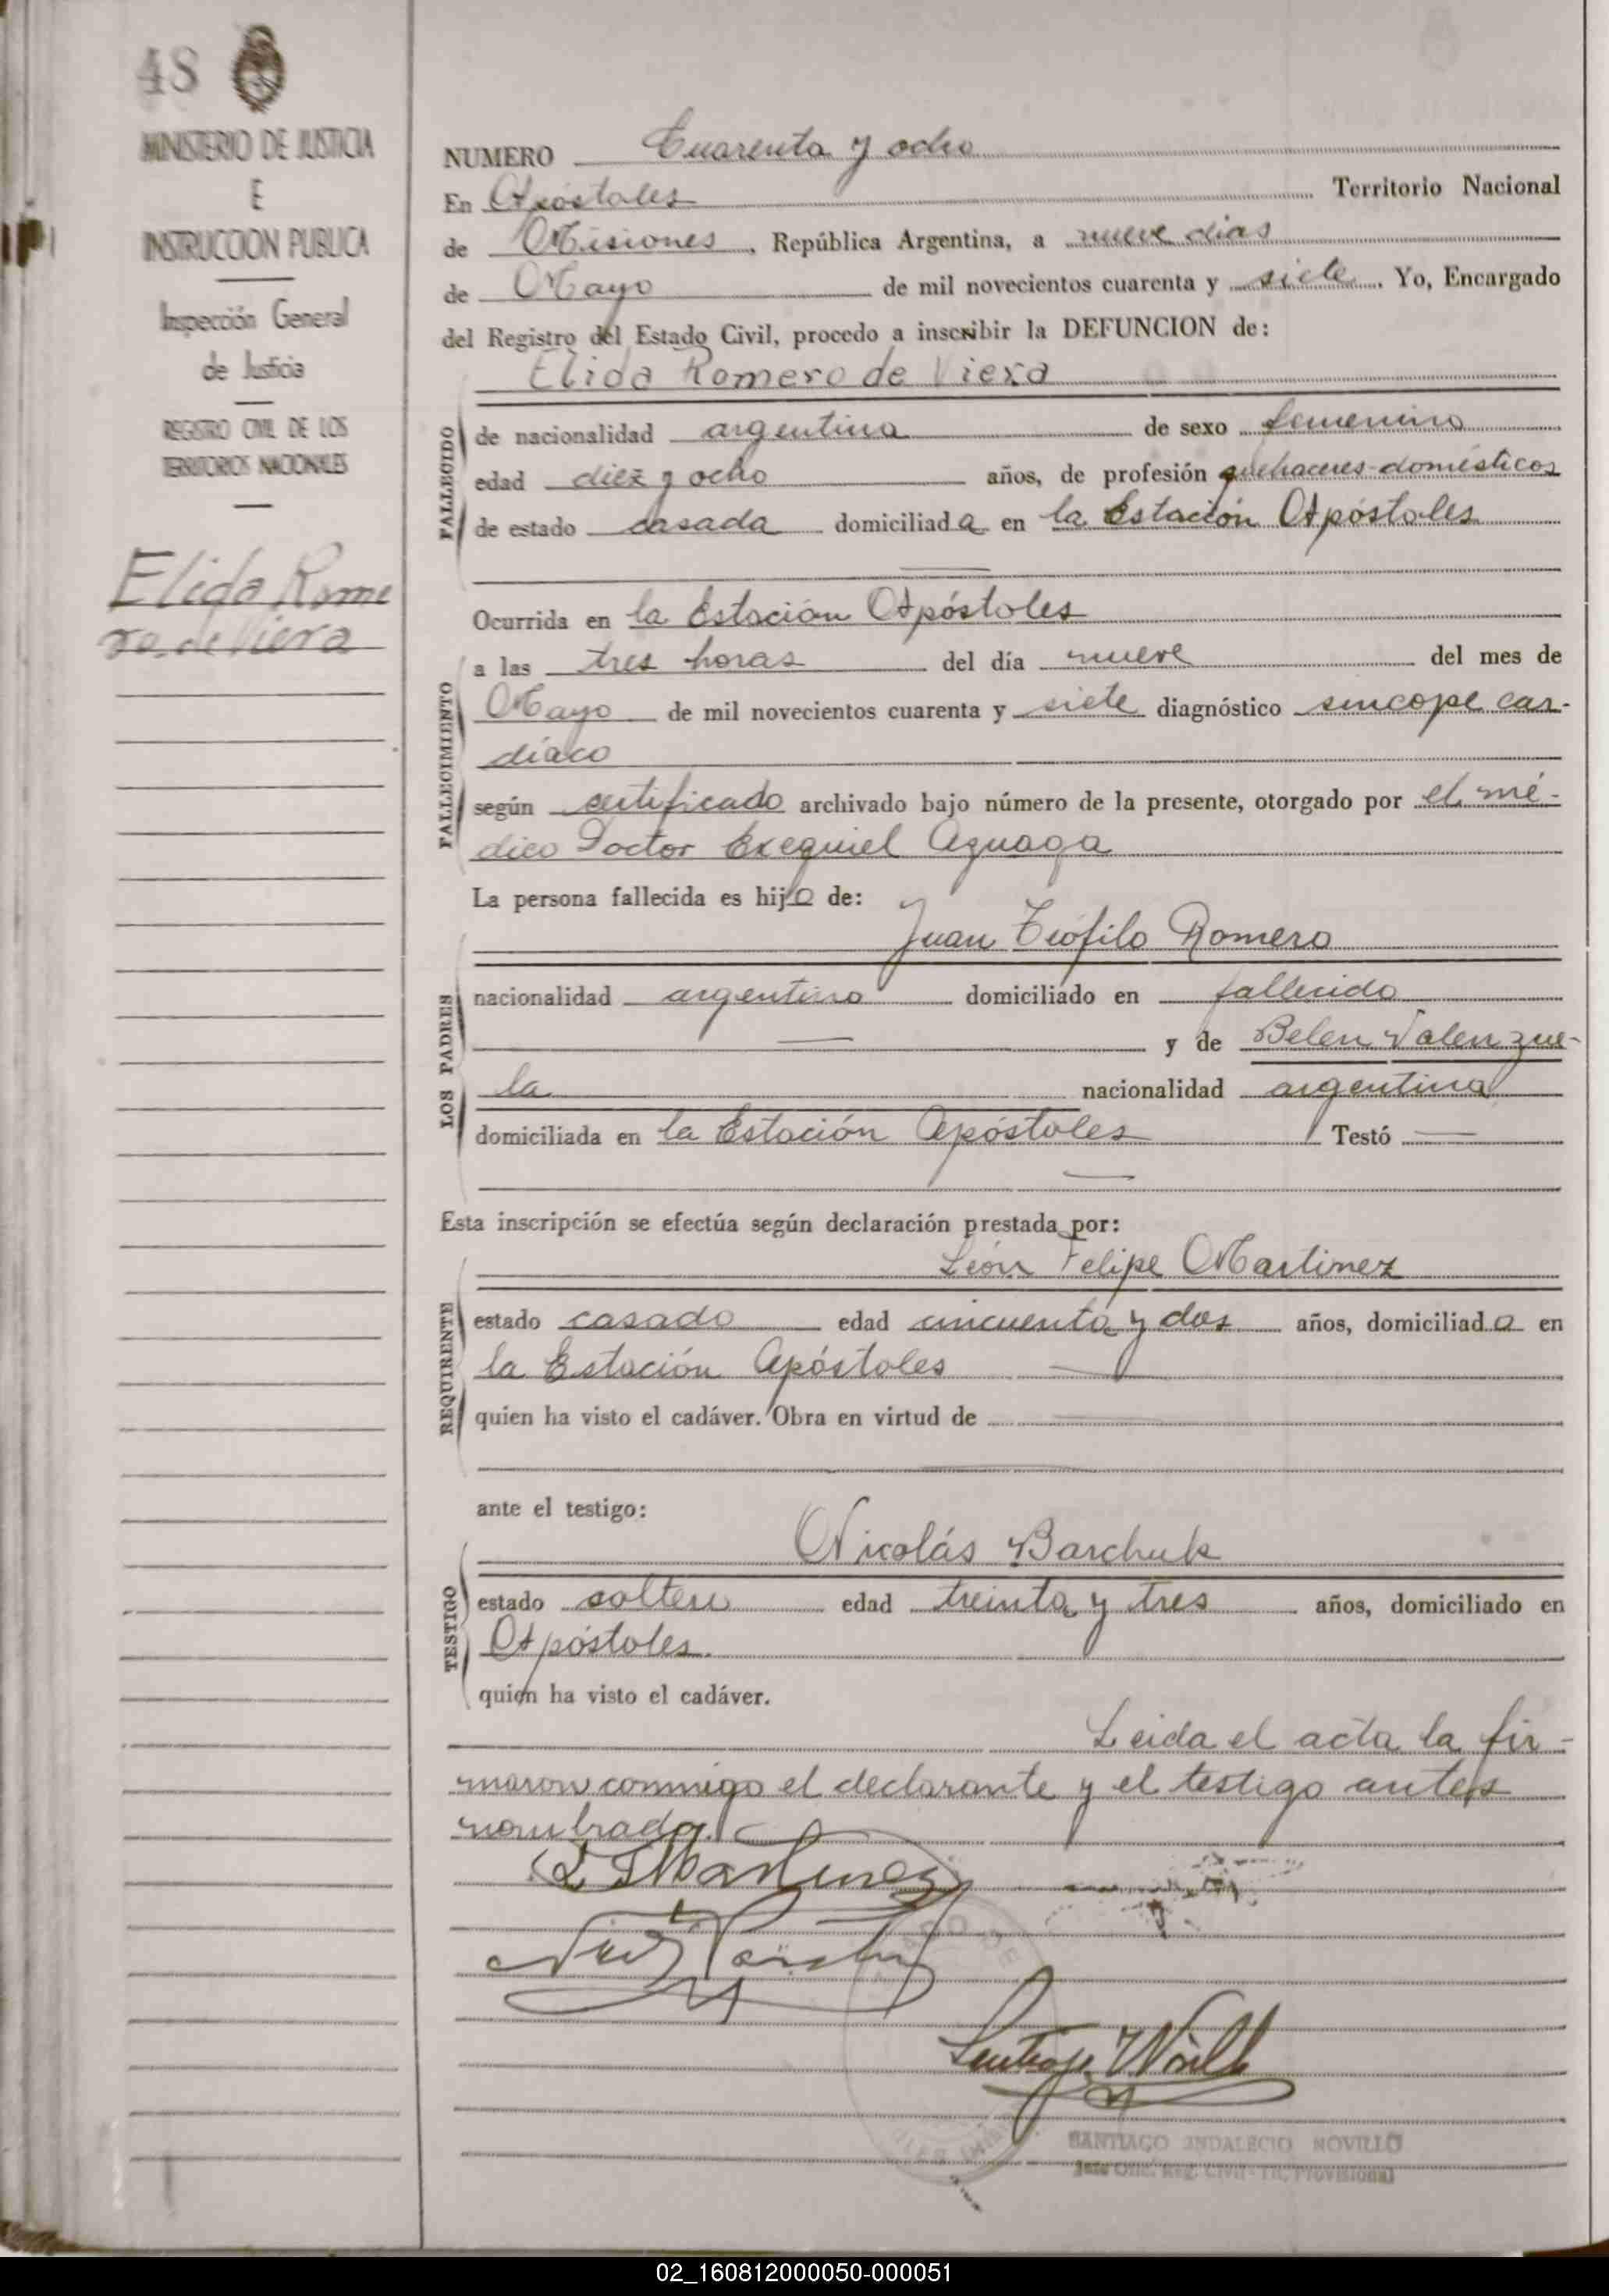 48
MINISTERIO DE JUSTICIA
E
INSTRUCCION PUBLICA
Inspección General
de Justicia
REGISTRO CIVIL DE LOS
TERRITORIOS NACIONALES
Elida Rome
ro de Viera
NUMERO Cuarenta y ocho
En Apóstoles Territorio Nacional
de Misiones, República Argentina, a nueve dias
de Mayo de mil novecientos cuarenta y siete. Yo, Encargado
del Registro del Estado Civil, procedo a inscribir la DEFUNCION de:
Elida Romero de Viera
FALLECIDO
de nacionalidad argentina de sexo femenino
edad diez y ocho años, de profesión quehaceres domésticos
de estado casada domiciliada en la Estación Apóstoles
Ocurrida en la Estación Apóstoles
FALLECIMIENTO
a las tres horas del día nueve del mes de
Mayo de mil novecientos cuarenta y siete diagnóstico sincope car-
díaco
según certificado archivado bajo número de la presente, otorgado por el mé-
dico Doctor Exequiel
La persona fallecida es hija de:
Juan Teófilo Romero
LOS PADRES
nacionalidad argentino domiciliado en fallecido
y de Belen Valenzue-
la nacionalidad argentina
domiciliada en la Estación Apóstoles Testó
Esta inscripción se efectúa según declaración prestada por:
León Felipe Martinez
REQUIRENTE
estado casado edad cincuenta y dos años, domiciliado en
la Estación Apóstoles
quien ha visto el cadáver. Obra en virtud de
ante el testigo:
Nicolás Barchuk
TESTIGO
estado soltero edad treinta y tres años, domiciliado en
Apóstoles.
quien ha visto el cadáver.
Leida el acta la fir-
maron conmigo el declarante y el testigo antes
nombrado.
L F Martinez
SANTIAGO INDALECIO NOVILLO
Jefe Ofic. Reg. Civil - Tit. Provisional
02_160812000050-000051